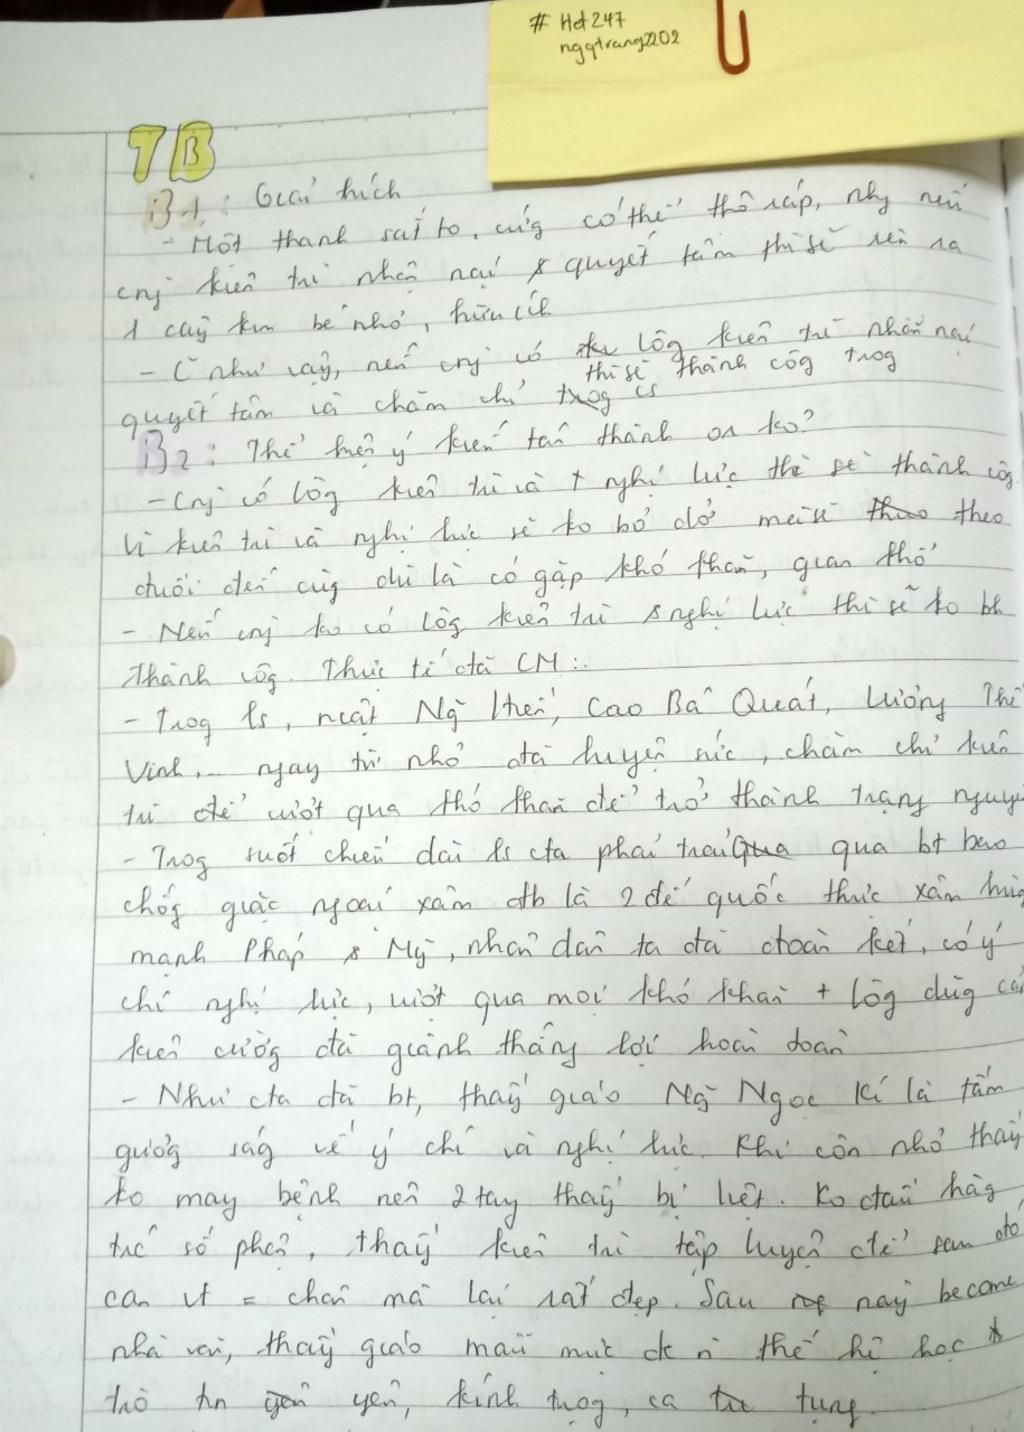 # Hot247
ngqtrang2202
TB
B1: Giải thích
- Một thanh sắt to, cứg có thể thô ráp, nhg nếu
cnj kiên trì nhẫn nại & quyết tâm thì sẽ rèn ra
1 cây kim bé nhỏ, hữu ích
- C như vậy, nếu cnj có lòg kiên trì nhẫn nại
thì sẽ thành côg trog
quyết tâm và chăm chỉ cs
B2: Thể hiện ý kiến tán thành or ko?
- Cnj có lòg kiên trì và + nghị lực thì sẽ thành côg
Vì kiên trì và nghị lực sẽ ko bỏ dở mà sẽ theo
đuổi đến cùg dù là có gặp khó khăn, gian khổ
- Nếu cnj ko có lòg kiên trì & nghị lực thì sẽ ko bh
thành côg. Thực tế đã CM:.
- Trog ls, Ng Hiền, Cao Bá Quát, Lương Thế
Vinh,... ngay từ nhỏ đã luyện sức, chăm chỉ kiên
trì để vượt qua khó khăn để trở thành trạng nguyê
- Trog suốt chiều dài ls cta phải trải qua bt bao
chốg giặc ngoại xâm đb là 2 đế quốc thực xâm hùg
mạnh Pháp & Mỹ, nhân dân ta đã đoàn kết, có ý
chí nghị lực, vượt qua mọi khó khăn + lòg dũg cả
kiên cườg đã giành thắng lợi hoàn toàn
- Như cta đã bt, thầy giáo Ng Ngọc Kí là tấm
gươg ság về ý chí và nghị lực. Khi còn nhỏ thầy
ko may bệnh nên 2 tay thầy bị liệt. Ko đầu hàg
trc số phận, thầy kiên trì tập luyện để sau đó
can vt = chân mà lại rất đẹp. Sau này become
nhà văn, thầy giáo mẫu mực dc n thế hệ học
trò tn yên, kính trọg, ca tụng.